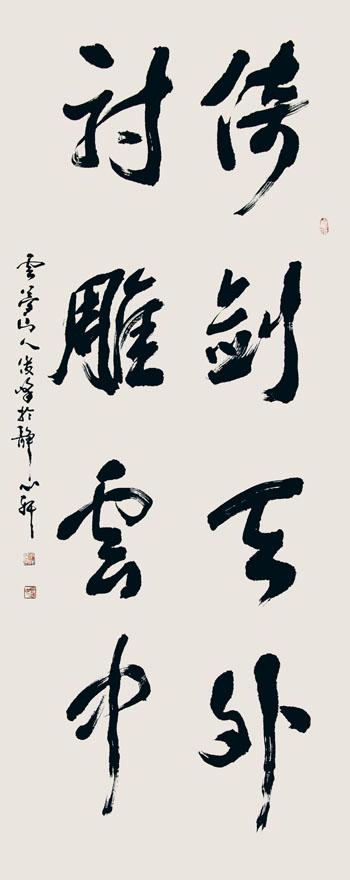 倚劍天外
射雕雲中
雲夢山人俊峰於靜心軒